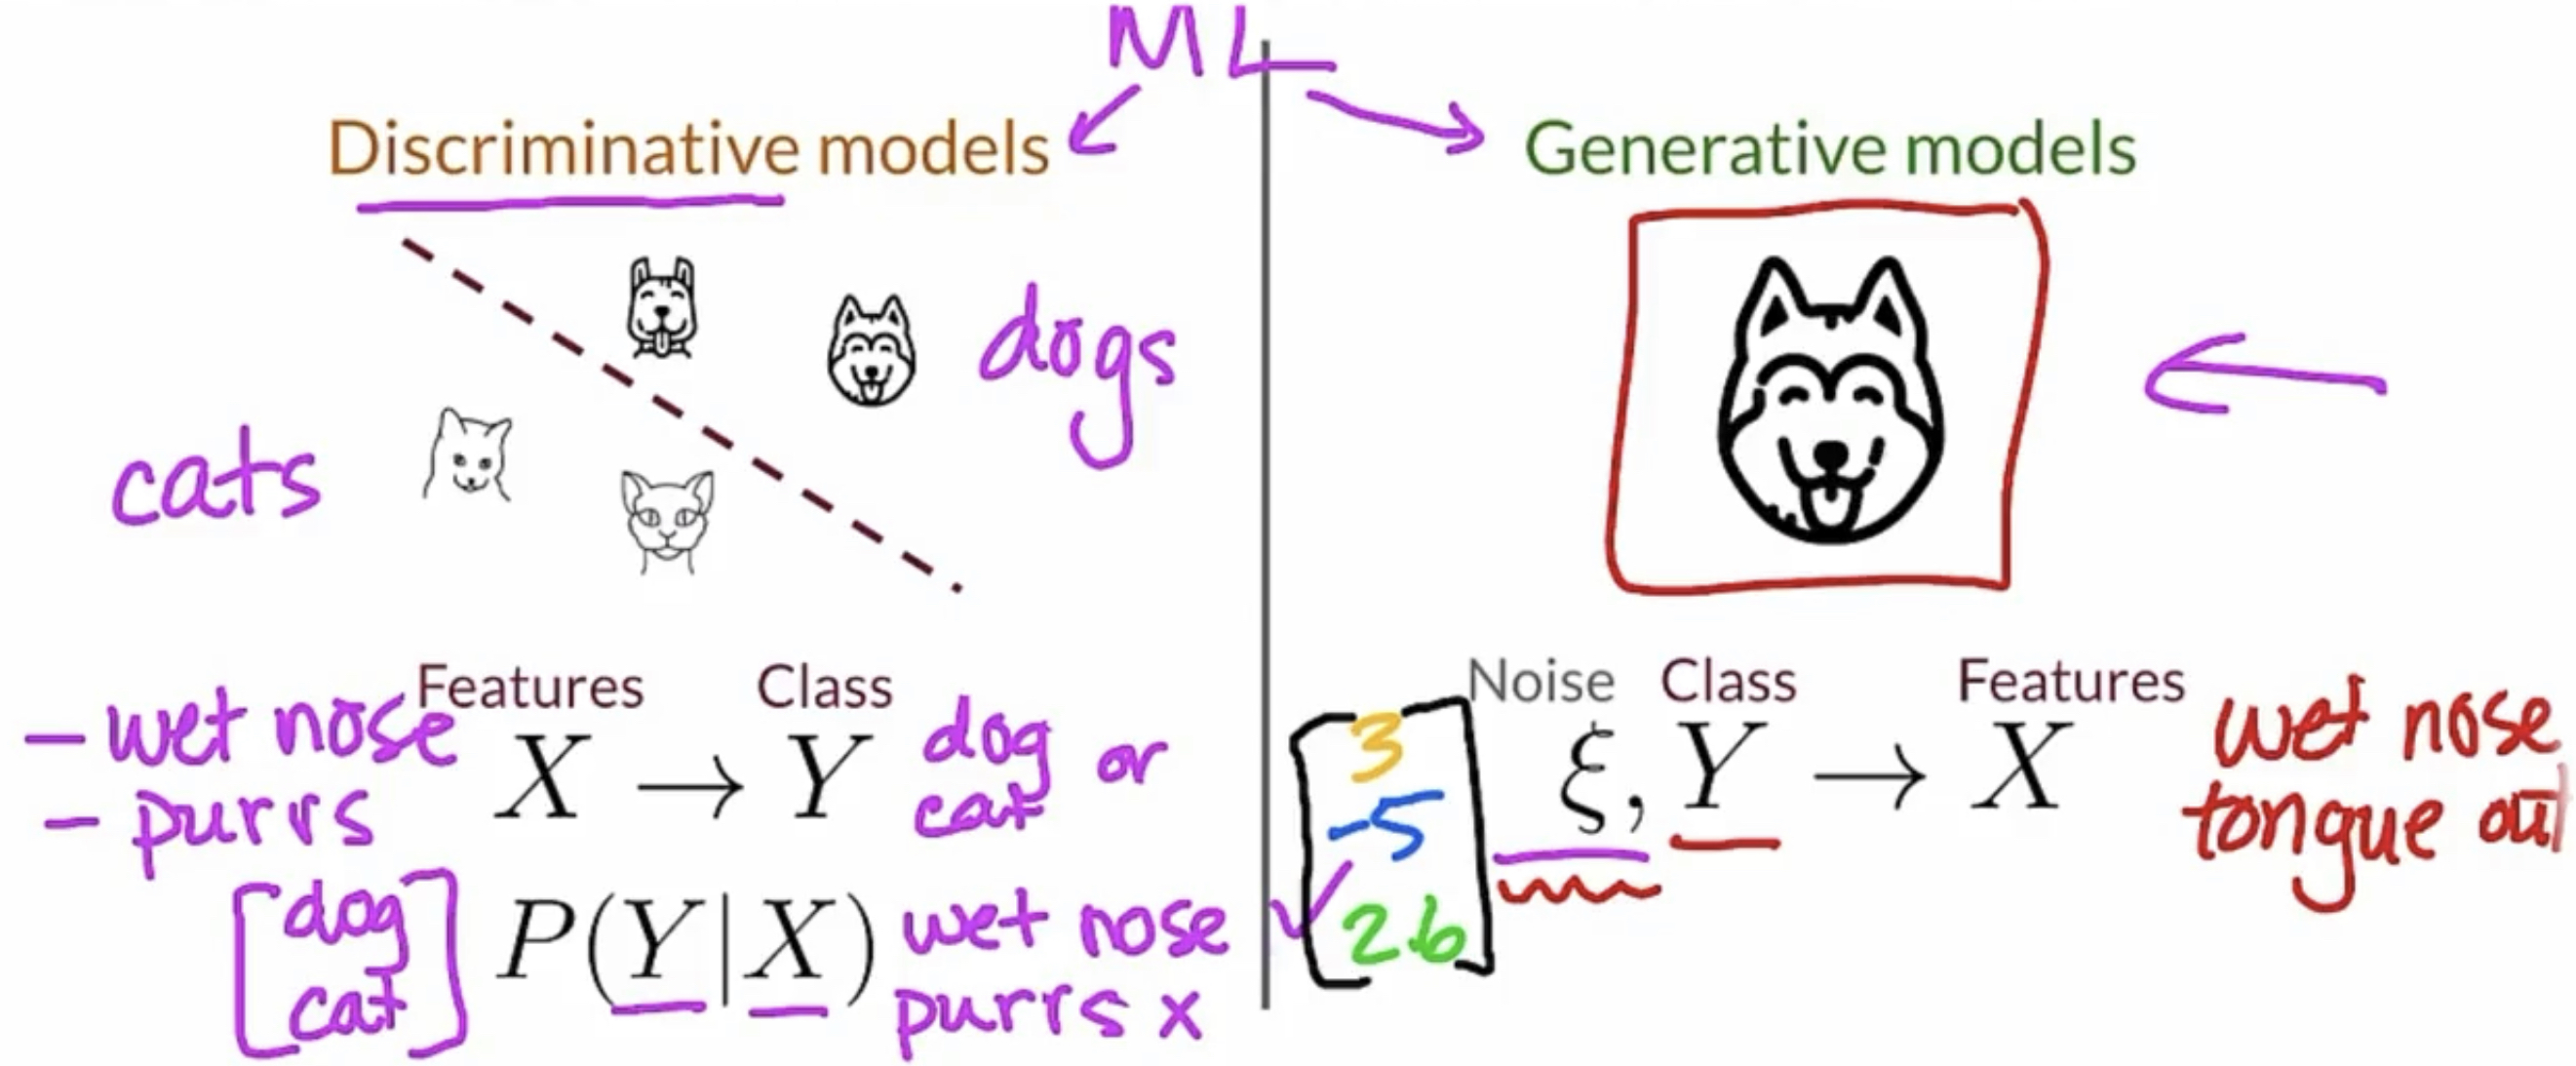 ML
Discriminative models
dogs
cats
Features Class
- wet nose X → Y dog or
- purrs cat
[dog
cat]
P(Y|X) wet nose ✓
purrs x
Generative models
Noise Class Features
ξ, Y → X
[3
-5
2.6]
wet nose
tongue out